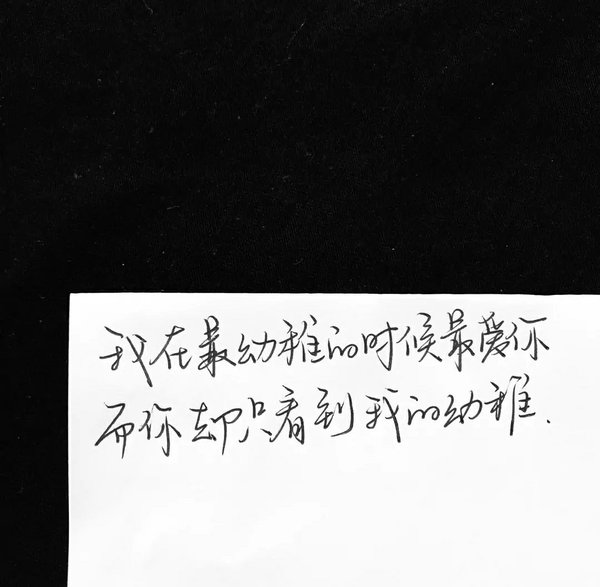 我在最幼稚的时候最爱你
而你却只看到我的幼稚.